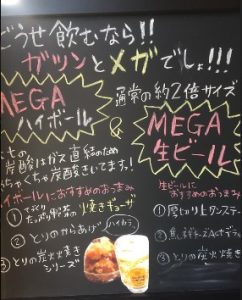 どうせ飲むなら!!
ガツンとメガでしょ!!!
MEGA
ハイボール
&
通常の約2倍サイズ
MEGA
生ビール
炭酸はガス直結のため
炭酸きいてます!
ハイボールにおすすめのおつまみ
① たっぷり野菜の焼きギョーザ
② とりのからあげ
③ とりの炭火焼き
シリーズ
生ビールに
おすすめのおつまみ
① 厚切り上タンステーキ
②
③ とりの炭火焼き